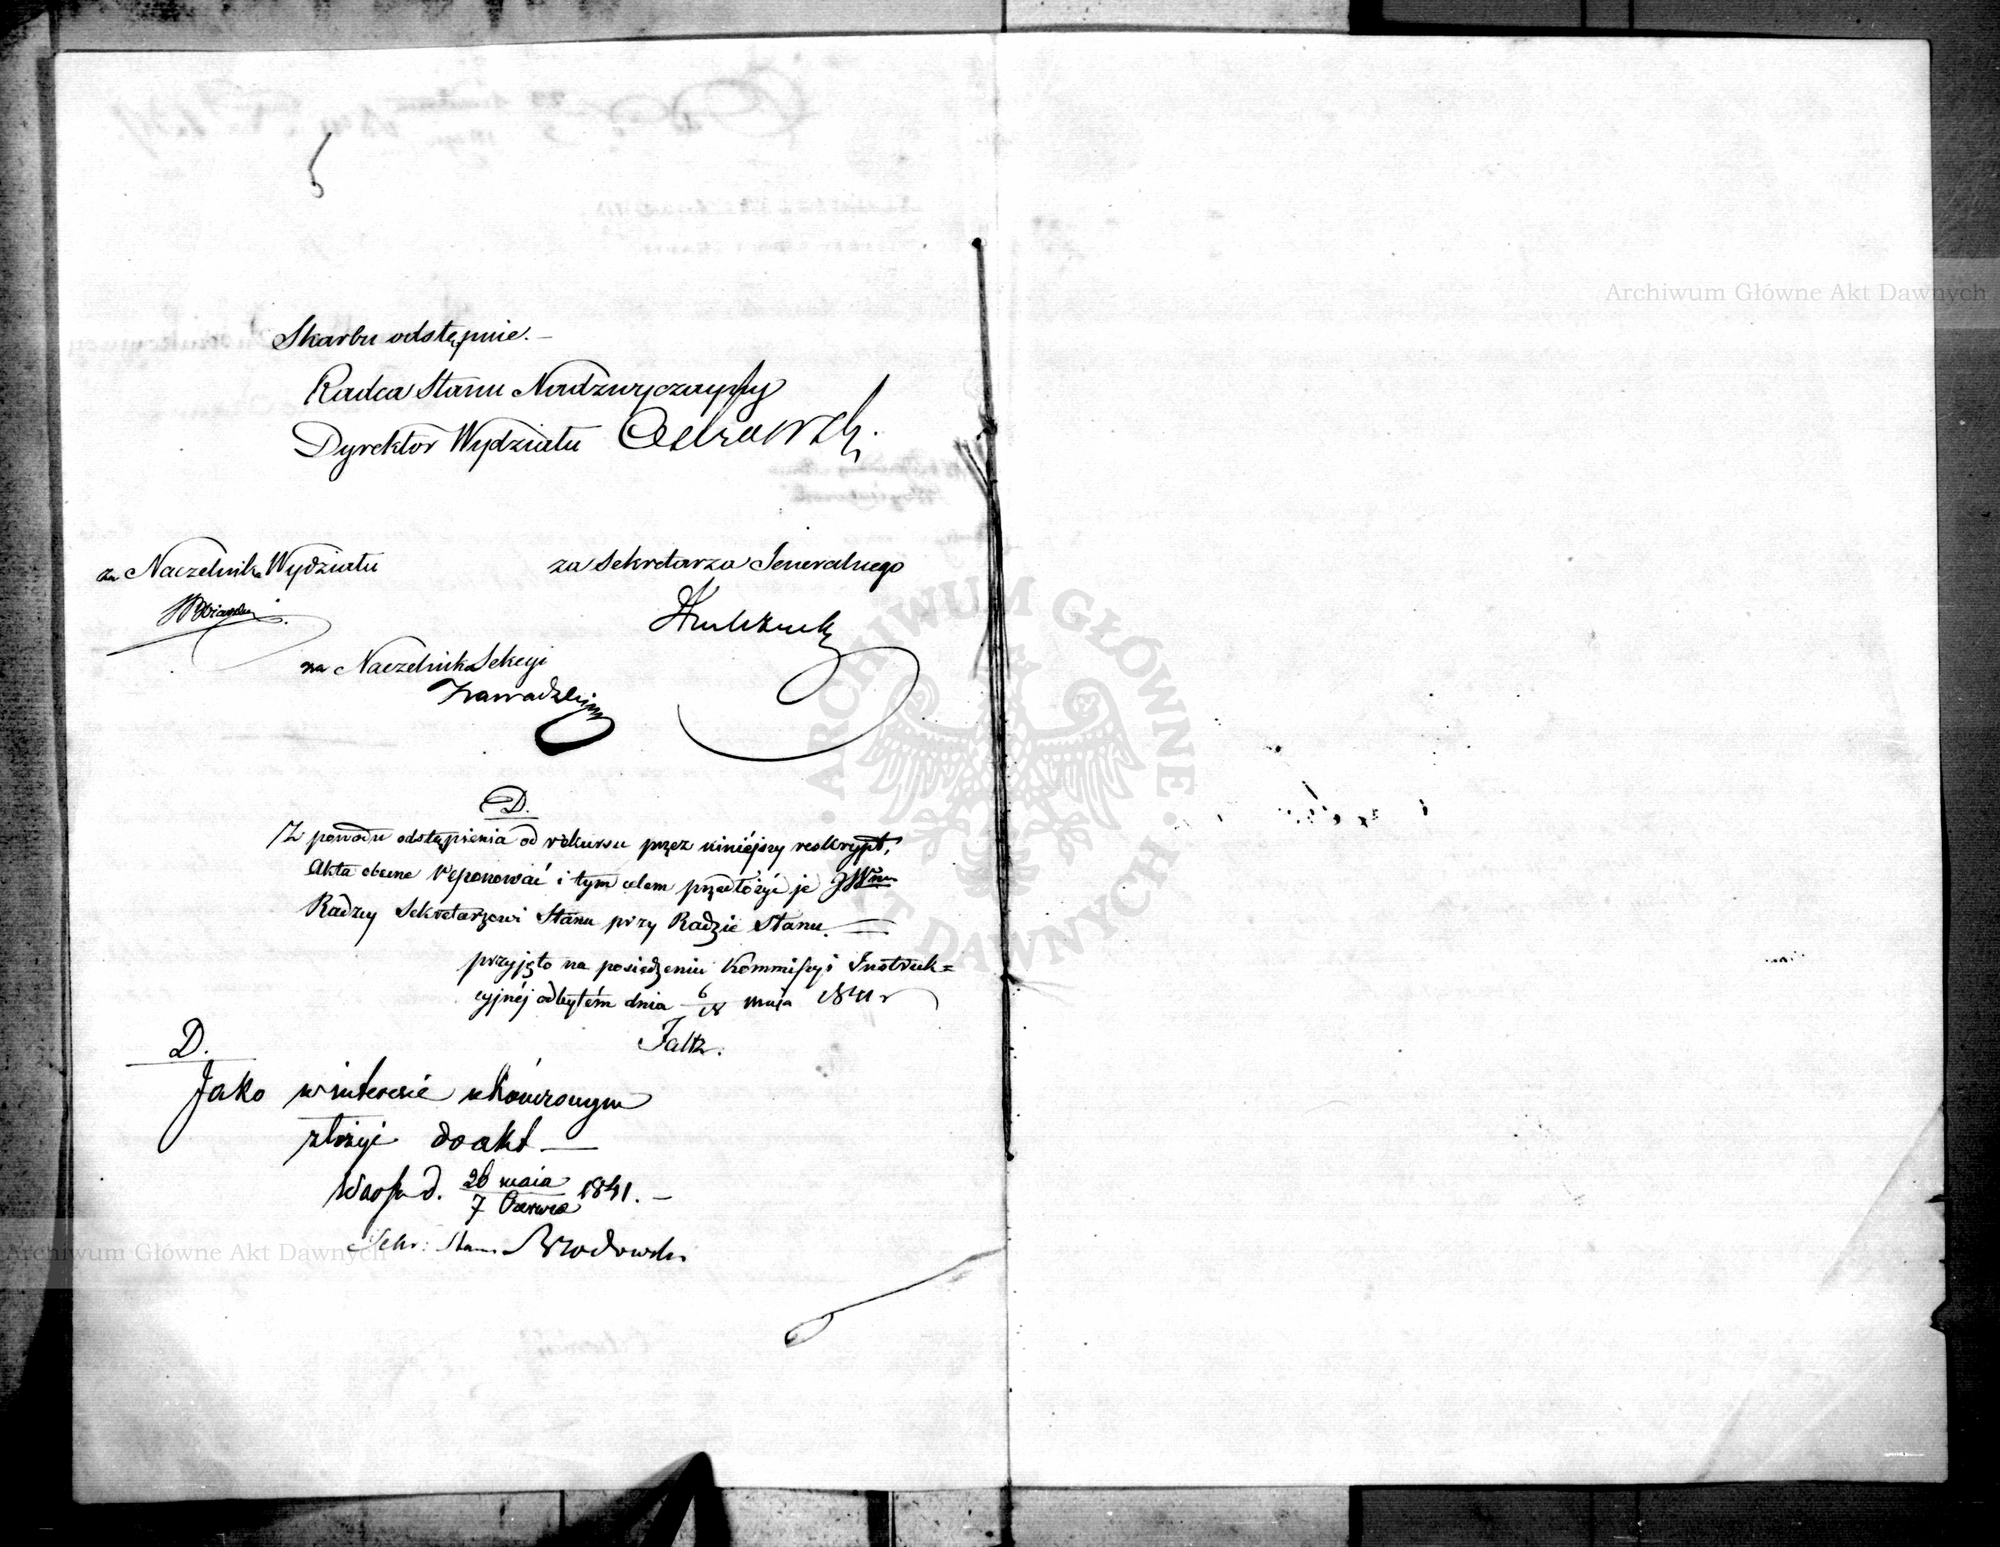 Skarbu odstępnie. —
Radca Stanu Nadzwyczayny
Dyrektor Wydziału
za Naczelnika Wydziału
za Sekretarza Jeneralnego
za Naczelnika Sekcyi
Zawadzki
D.
Z powodu odstąpienia od rekursu przez niniéjszy reskrypt,
Akta obecne reponować i tym celem przedłożyć je JWmu
Radzcy Sekretarzowi Stanu przy Radzie Stanu. —
przyjęto na posiedzeniu Kommissyi Instruk=
cyjnéj odbytém dnia 6/18 maja 1841 r
Faltz.
D.
Jako w interesie ukończonym
złożyć do akt —
Warsz d. 26 maia / 7 Czerwca 1841. —
Sekr: Stanu Brodowski
ARCHIWUM GŁÓWNE AKT DAWNYCH
Archiwum Główne Akt Dawnych
Archiwum Główne Akt Dawnych